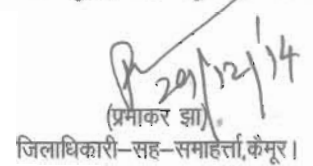 29/12/14
(प्रभाकर झा)
जिलाधिकारी–सह–समाहर्त्ता,कैमूर।